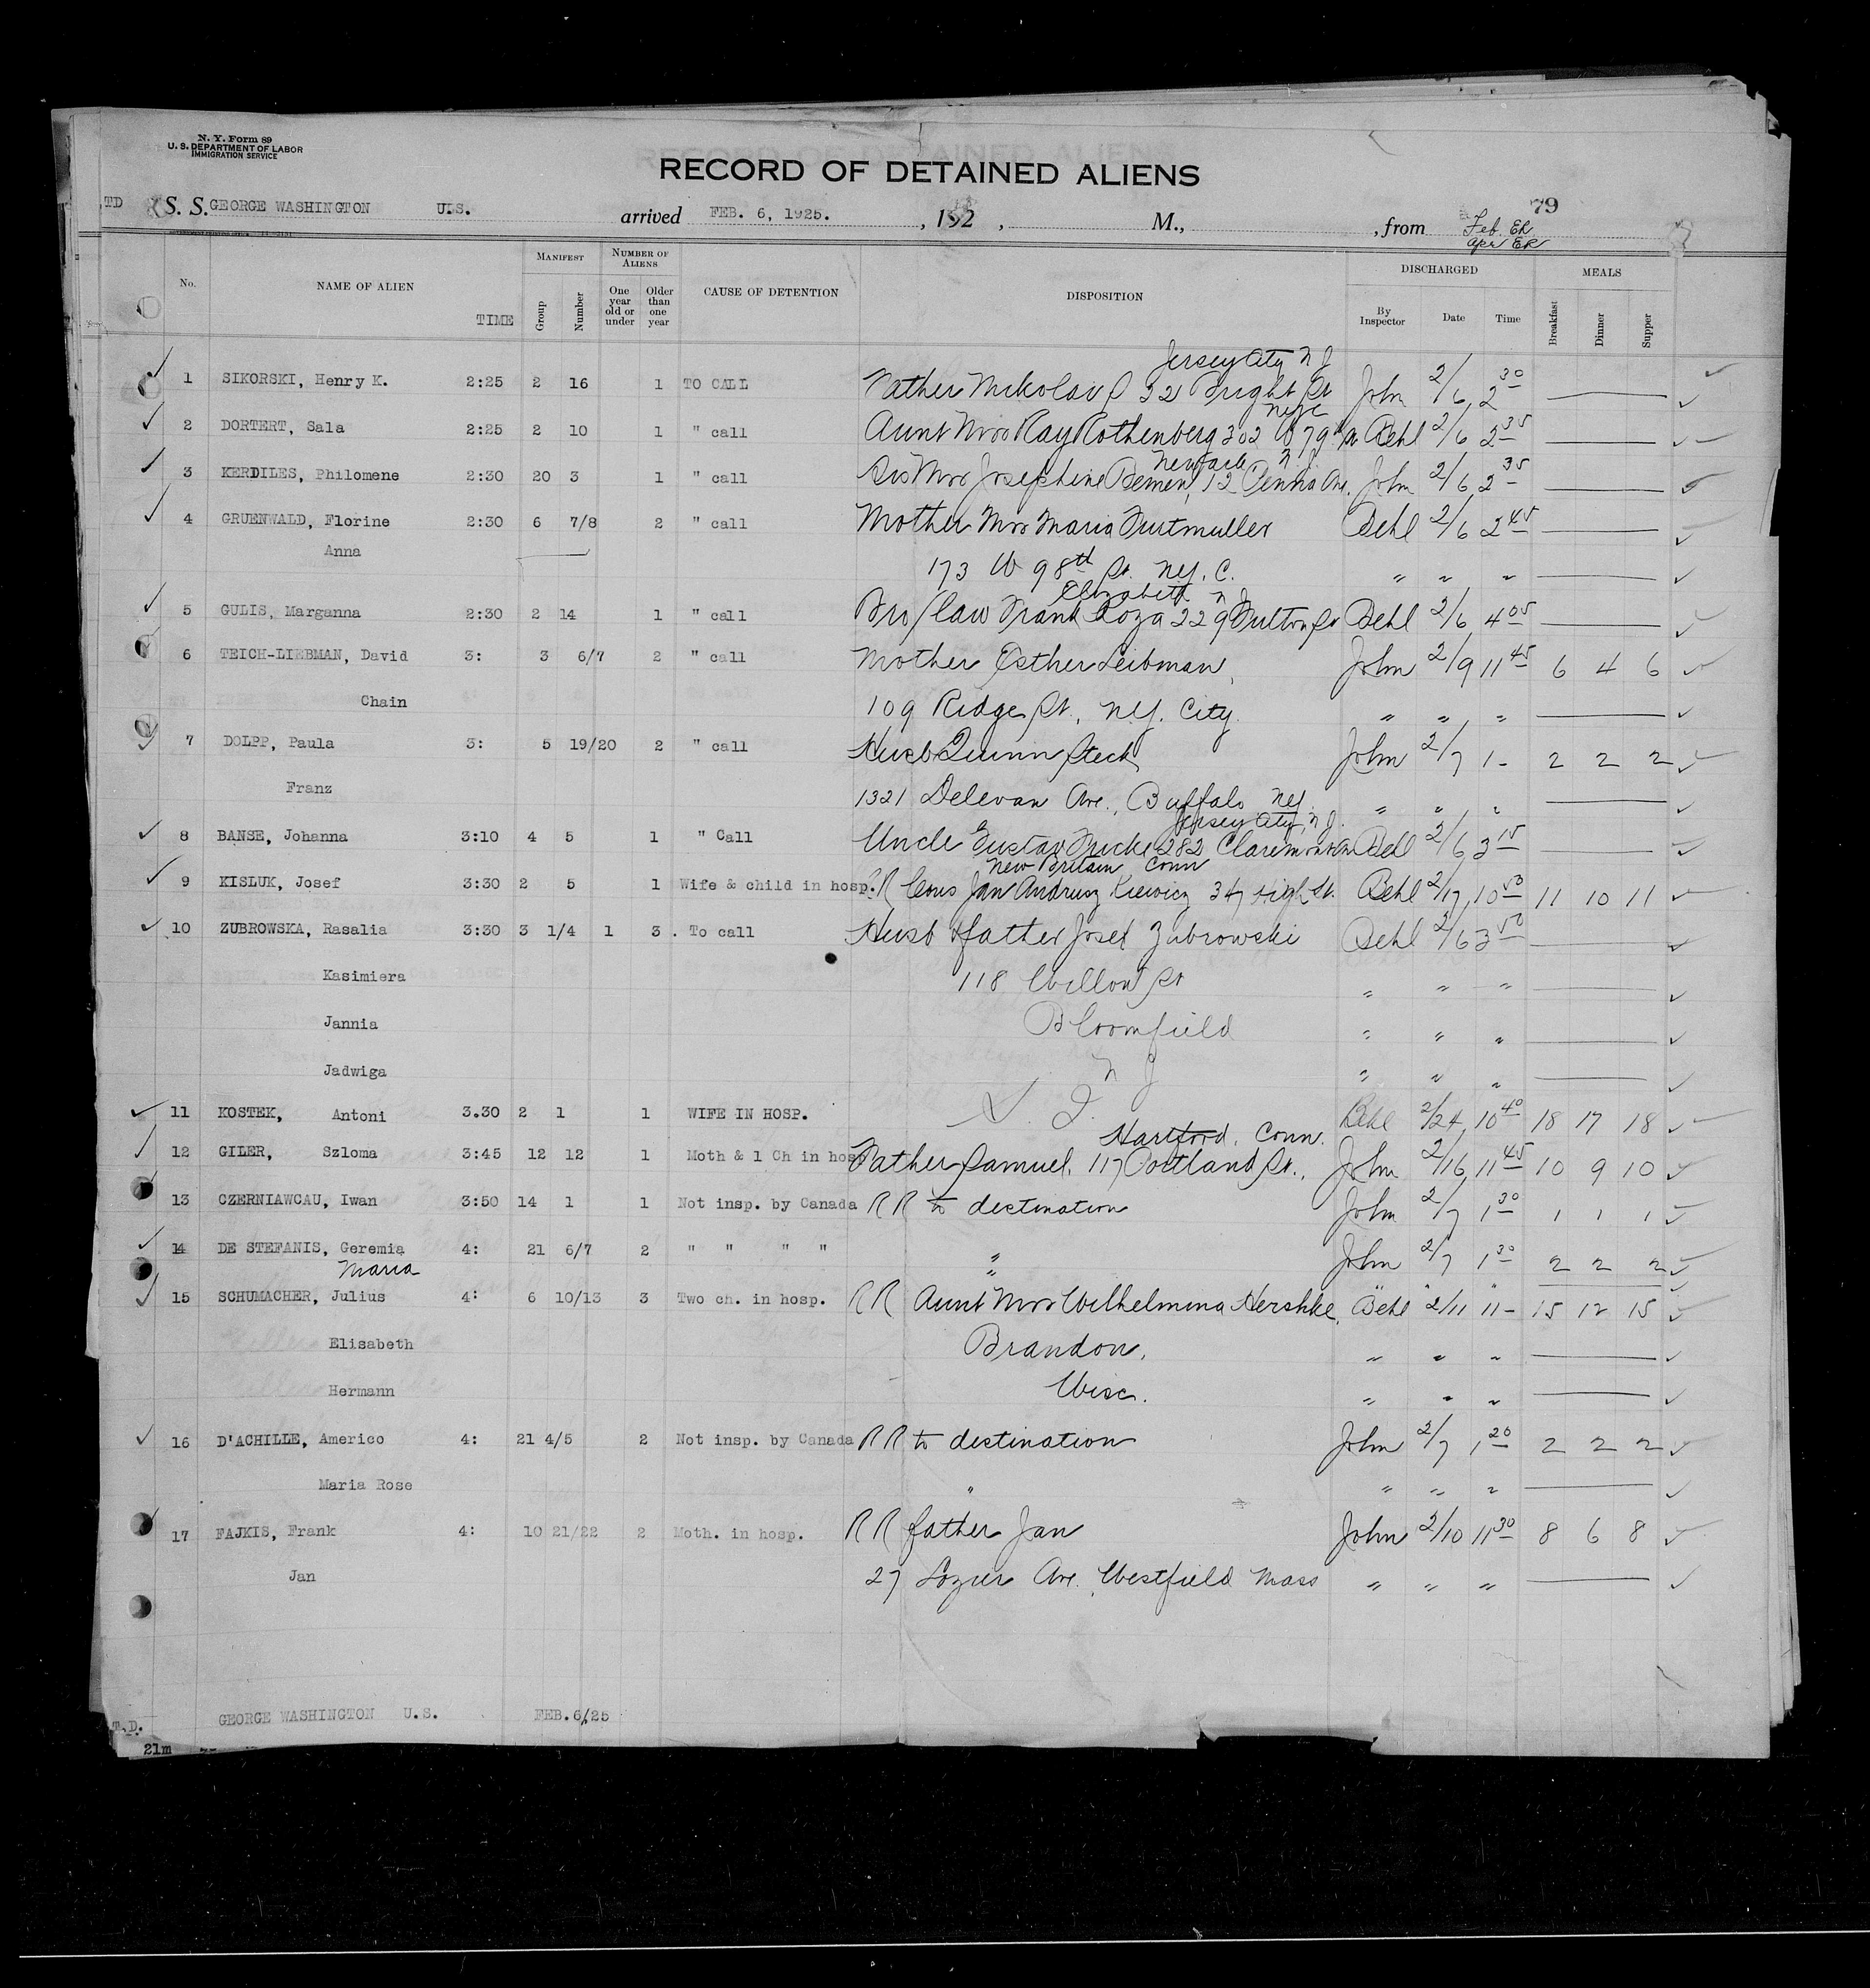 N. Y. Form 89
U. S. DEPARTMENT OF LABOR
IMMIGRATION SERVICE
RECORD OF DETAINED ALIENS
79
TD S. S. GEORGE WASHINGTON U.S. arrived FEB. 6, 1925. , 192 , M., , from Feb. ER
Apr ER
No. NAME OF ALIEN TIME MANIFEST Group Number NUMBER OF ALIENS One year old or under Older than one year CAUSE OF DETENTION DISPOSITION DISCHARGED By Inspector Date Time MEALS Breakfast Dinner Supper
Jersey City N J
1 SIKORSKI, Henry K. 2:25 2 16 1 TO CALL Father Mikolav 32 Bright St John 2/6 2 30
NYC
2 DORTERT, Sala 2:25 2 10 1 " call Aunt Mrs Ray Rothenberg 302 W 79th Behl 2/6 2 35
Newark N.J.
3 KERDILES, Philomene 2:30 20 3 1 " call Sis Mrs Josephine Bemen, 12 Penna Ave. John 2/6 2 35
4 GRUENWALD, Florine 2:30 6 7/8 2 " call Mother Mrs Maria Furtmuller Behl 2/6 2 45
Anna 173 W 98th St. NY. C. " " "
Elizabeth N J
5 GULIS, Marganna 2:30 2 14 1 " call Bro/law Frank Roza 229 Fulton St Behl 2/6 4 05
6 TEICH-LIEBMAN, David 3: 3 6/7 2 " call Mother Esther Leibman, John 2/9 11 45 6 4 6
Chain 109 Ridge St., NY. City. " " "
7 DOLPP, Paula 3: 5 19/20 2 " call Husb Quinn Steck John 2/7 1- 2 2 2
Franz 1321 Delevan Ave., Buffalo NY. " " "
Jersey City, N J.
8 BANSE, Johanna 3:10 4 5 1 " Call Uncle Gustav Fricke 282 Claremont Ave Behl 2/6 3 15
New Britain Conn
9 KISLUK, Josef 3:30 2 5 1 Wife & child in hosp. RR Cous Jan Andrusz Kiewicz 347 High St. Behl 2/17 10 50 11 10 11
10 ZUBROWSKA, Rasalia 3:30 3 1/4 1 3 . To call Husb & father Josef Zubrowski Behl 2/6 3 50
Kasimiera 118 Willow St " " "
Jannia Bloomfield " " "
Jadwiga N J " " "
11 KOSTEK, Antoni 3.30 2 1 1 WIFE IN HOSP. S. I. Behl 2/24 10 40 18 17 18
Hartford, Conn.
12 GILER, Szloma 3:45 12 12 1 Moth & 1 Ch in hos Father Samuel, 117 Portland St., John 2/16 11 45 10 9 10
13 CZERNIAWCAU, Iwan 3:50 14 1 1 Not insp. by Canada RR to destination John 2/7 1 30 1 1 1
14 DE STEFANIS, Geremia 4: 21 6/7 2 " " " " " John 2/7 1 30 2 2 2
Maria " " " "
15 SCHUMACHER, Julius 4: 6 10/13 3 Two ch. in hosp. RR Aunt Mrs Wilhelmina Hershke, Behl 2/11 11- 15 12 15
Elisabeth Brandon, " " "
Hermann Wisc. " " "
16 D'ACHILLE, Americo 4: 21 4/5 2 Not insp. by Canada RR to destination John 2/7 1 20 2 2 2
Maria Rose " " " "
17 FAJKIS, Frank 4: 10 21/22 2 Moth. in hosp. RR father Jan John 2/10 11 30 8 6 8
Jan 27 Lozier Ave. Westfield Mass " " "
T.D. GEORGE WASHINGTON U.S. FEB.6/25
21m